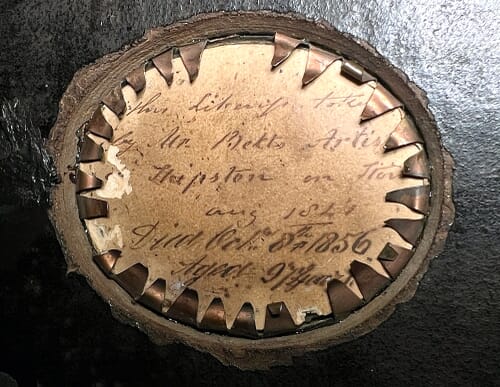 this Likeness take
by Mr Betts Artis
Shipston on Stour
aug 1844
Died Octr 8th 1856
Aged 97 Years